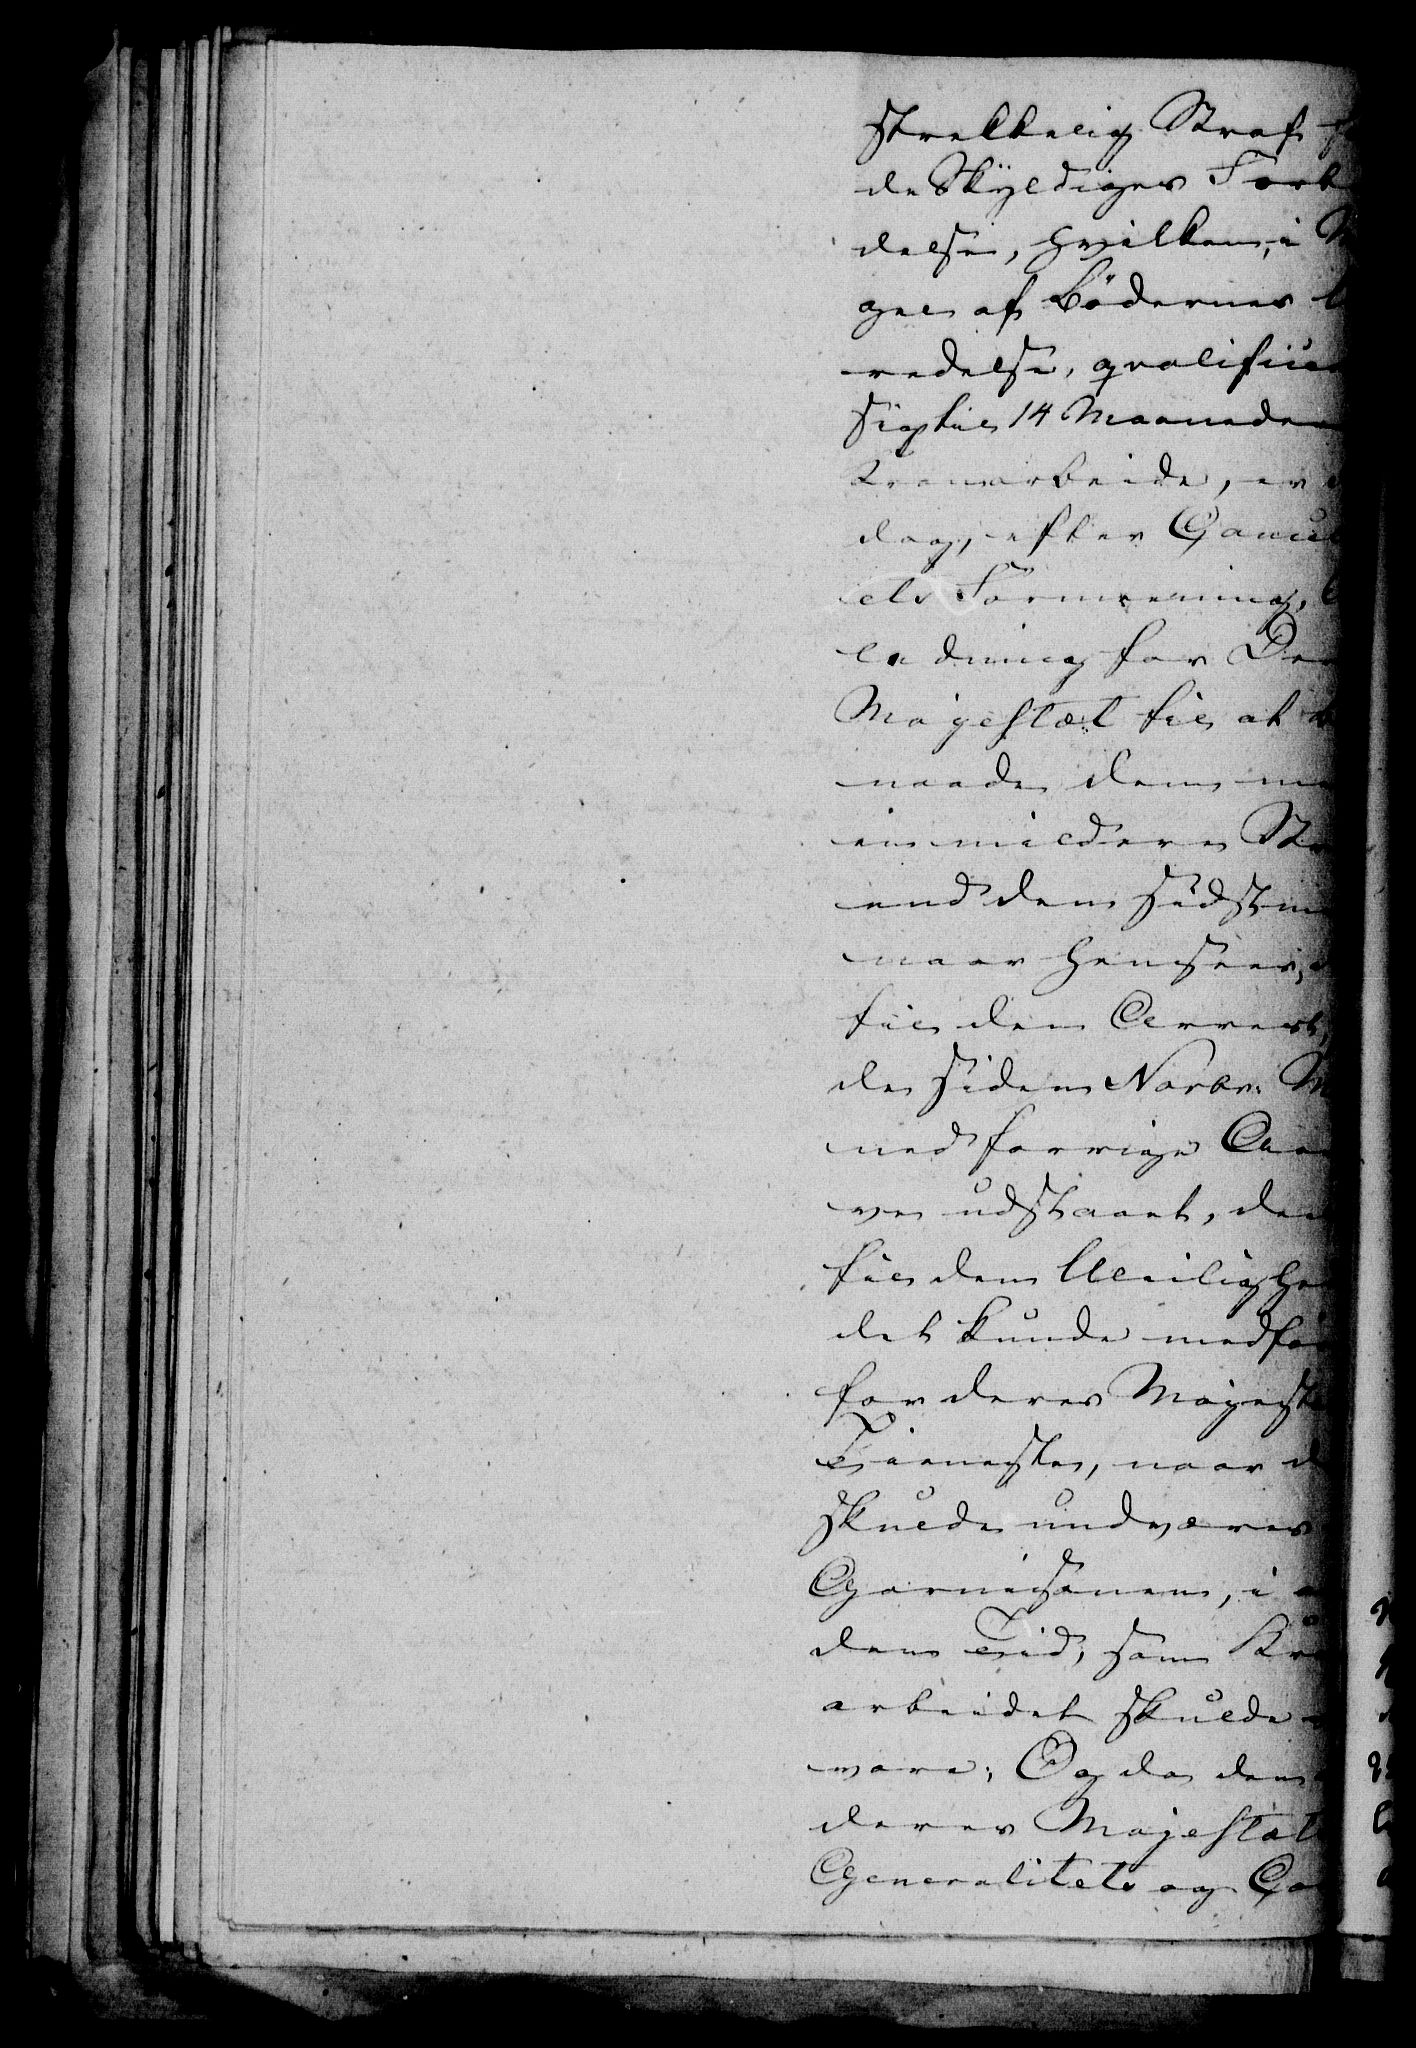 strekkelig Straf f
de Skyldiges Forb
delse, hvilken, i M
gel af Bødernes U
redelse, qvalifice
sig til 14 Maaneder
Kronarbeide, er d
dog, efter Cancel
els Formening, 
ledning for De
Majestæt til at be
naade dem m
en mildere St
end den sidstn
naar henseer,
til den Arrest,
de siden Novbr: M
ned forrige Aar
ve udstaaet, de
til den Uleilighe
det kunde medfø
for deres Majest
Tieneste, naar d
skulde undværes
Garnisonen, i 
den Tid, som Kr
arbeidet skulde
vare; Og da den
deres Majestæt
Generalitets og Co